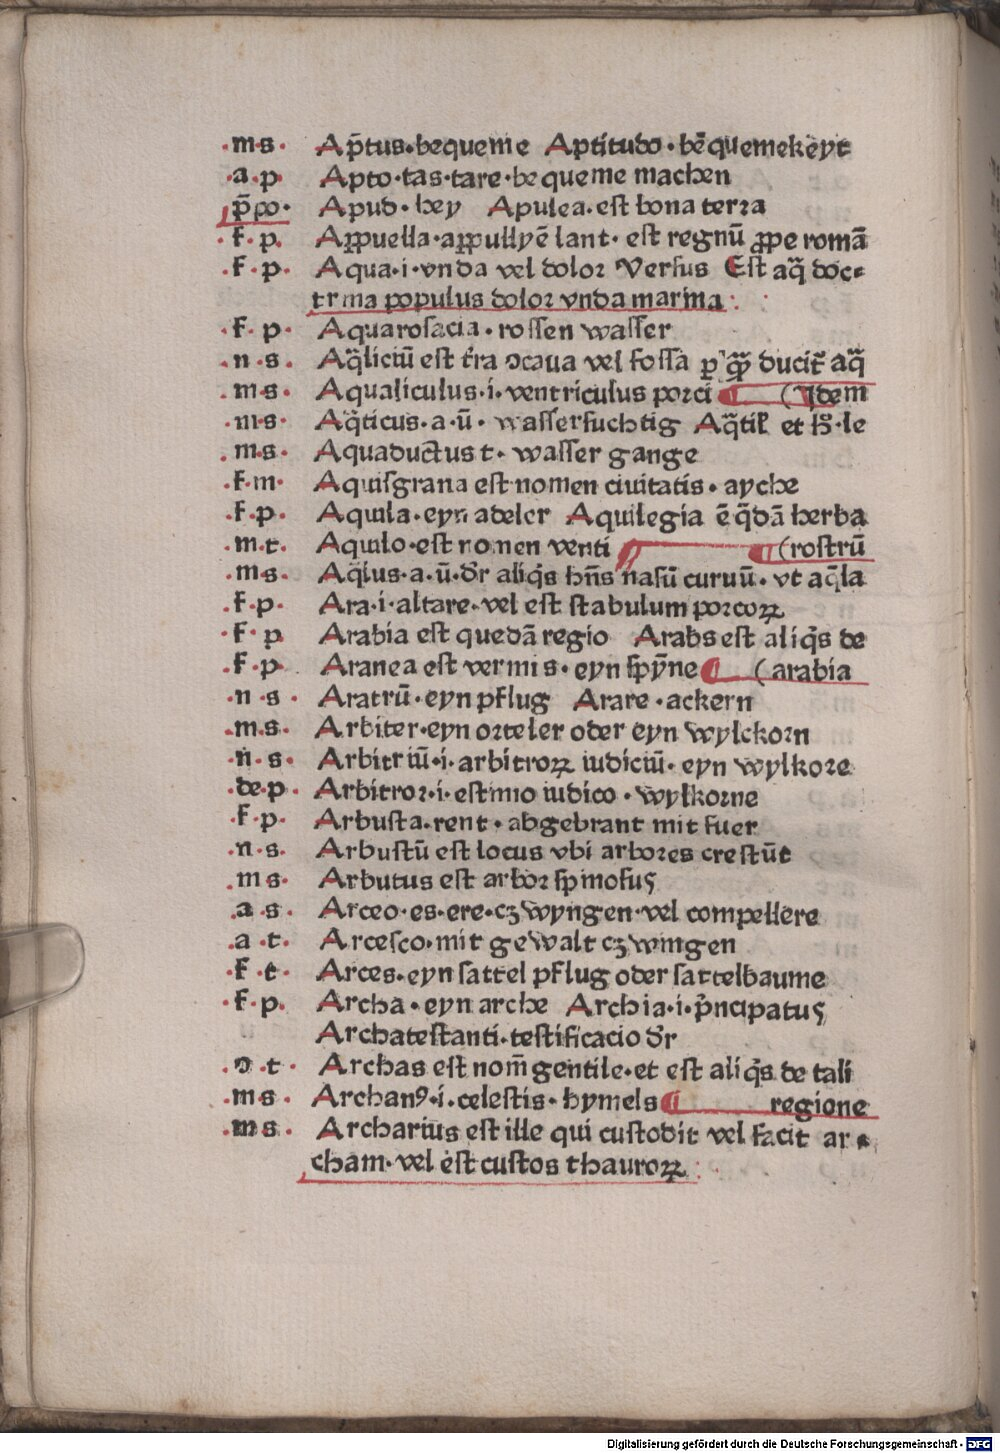 .m.s. Ap̄tus.bequeme Aptitudo.bēquemekeyt
.a.p Apto.tas.tare.bequeme machen
p̄po. Apud.hey Apulea.est bona terra
.f.p. Appuella.appullyē lant.est regnū ꝓpe romā
.f.p. Aqua.i.vnda vel dolor Versus Est aq̄ doc-
trina populus dolor vnda marina
.f.p. Aquarosacia.rossen wasser
.n.s. Aq̄liciū est t̄ra ɔcaua vel fossa ꝑ quā ducit̄ aq̄
.m.s. Aqualiculus.i.ventriculus porci (Idem
.m.s. Aq̄ticus.a.ū. wasserfuchtig Aq̄til̄ et h̄.le
.m.s. Aquaductus t. wasser gange
.f.m. Aquisgrana est nomen ciuitatis.ayche
.f.p. Aquila.eyn adeler Aquilegia ē q̄dā herba
.m.t. Aquilo.est nomen venti (rostrū
.m.s. Aq̄lus.a.ū.dr̄ aliq̄s hn̄s nasū curuū.vt aq̄la
.f.p. Ara.i.altare.vel est stabulum porcoꝝ
.f.p Arabia est quedā regio Arabs est aliq̄s de
.f.p. Aranea est vermis.eyn spȳne (arabia
.n.s. Aratrū.eyn pflug Arare.ackern
.m.s. Arbiter.eyn orteler oder eyn wylckorn
.n.s. Arbitriū.i.arbitroꝝ iudiciū.eyn wylkore
.de.p. Arbitror.i.estimo iudico.wylkorne
.f.p. Arbusta.rent.abgebrant mit fuer
.n.s. Arbustū est locus vbi arbores crescūt
.m s. Arbutus est arbor spinosus
.a.s. Arceo.es.ere.czwyngen.vel compellere
.a.t. Arcesco.mit gewalt czwingen
.f.t. Arces.eyn sattel pflug oder sattelbaume
.f.p. Archa.eyn arche Archia.i.p̄ncipatus
Archatestanti.testificacio dr̄
.ɔ.t. Archas est nom̄ gentile.et est aliq̄s de tali
.m.s. Archanꝰ.i.celestis.hymels regione
.m.s. Archarius est ille qui custodit vel facit ar-
cham.vel est custos thauroꝝ
Digitalisierung gefördert durch die Deutsche Forschungsgemeinschaft - DFG